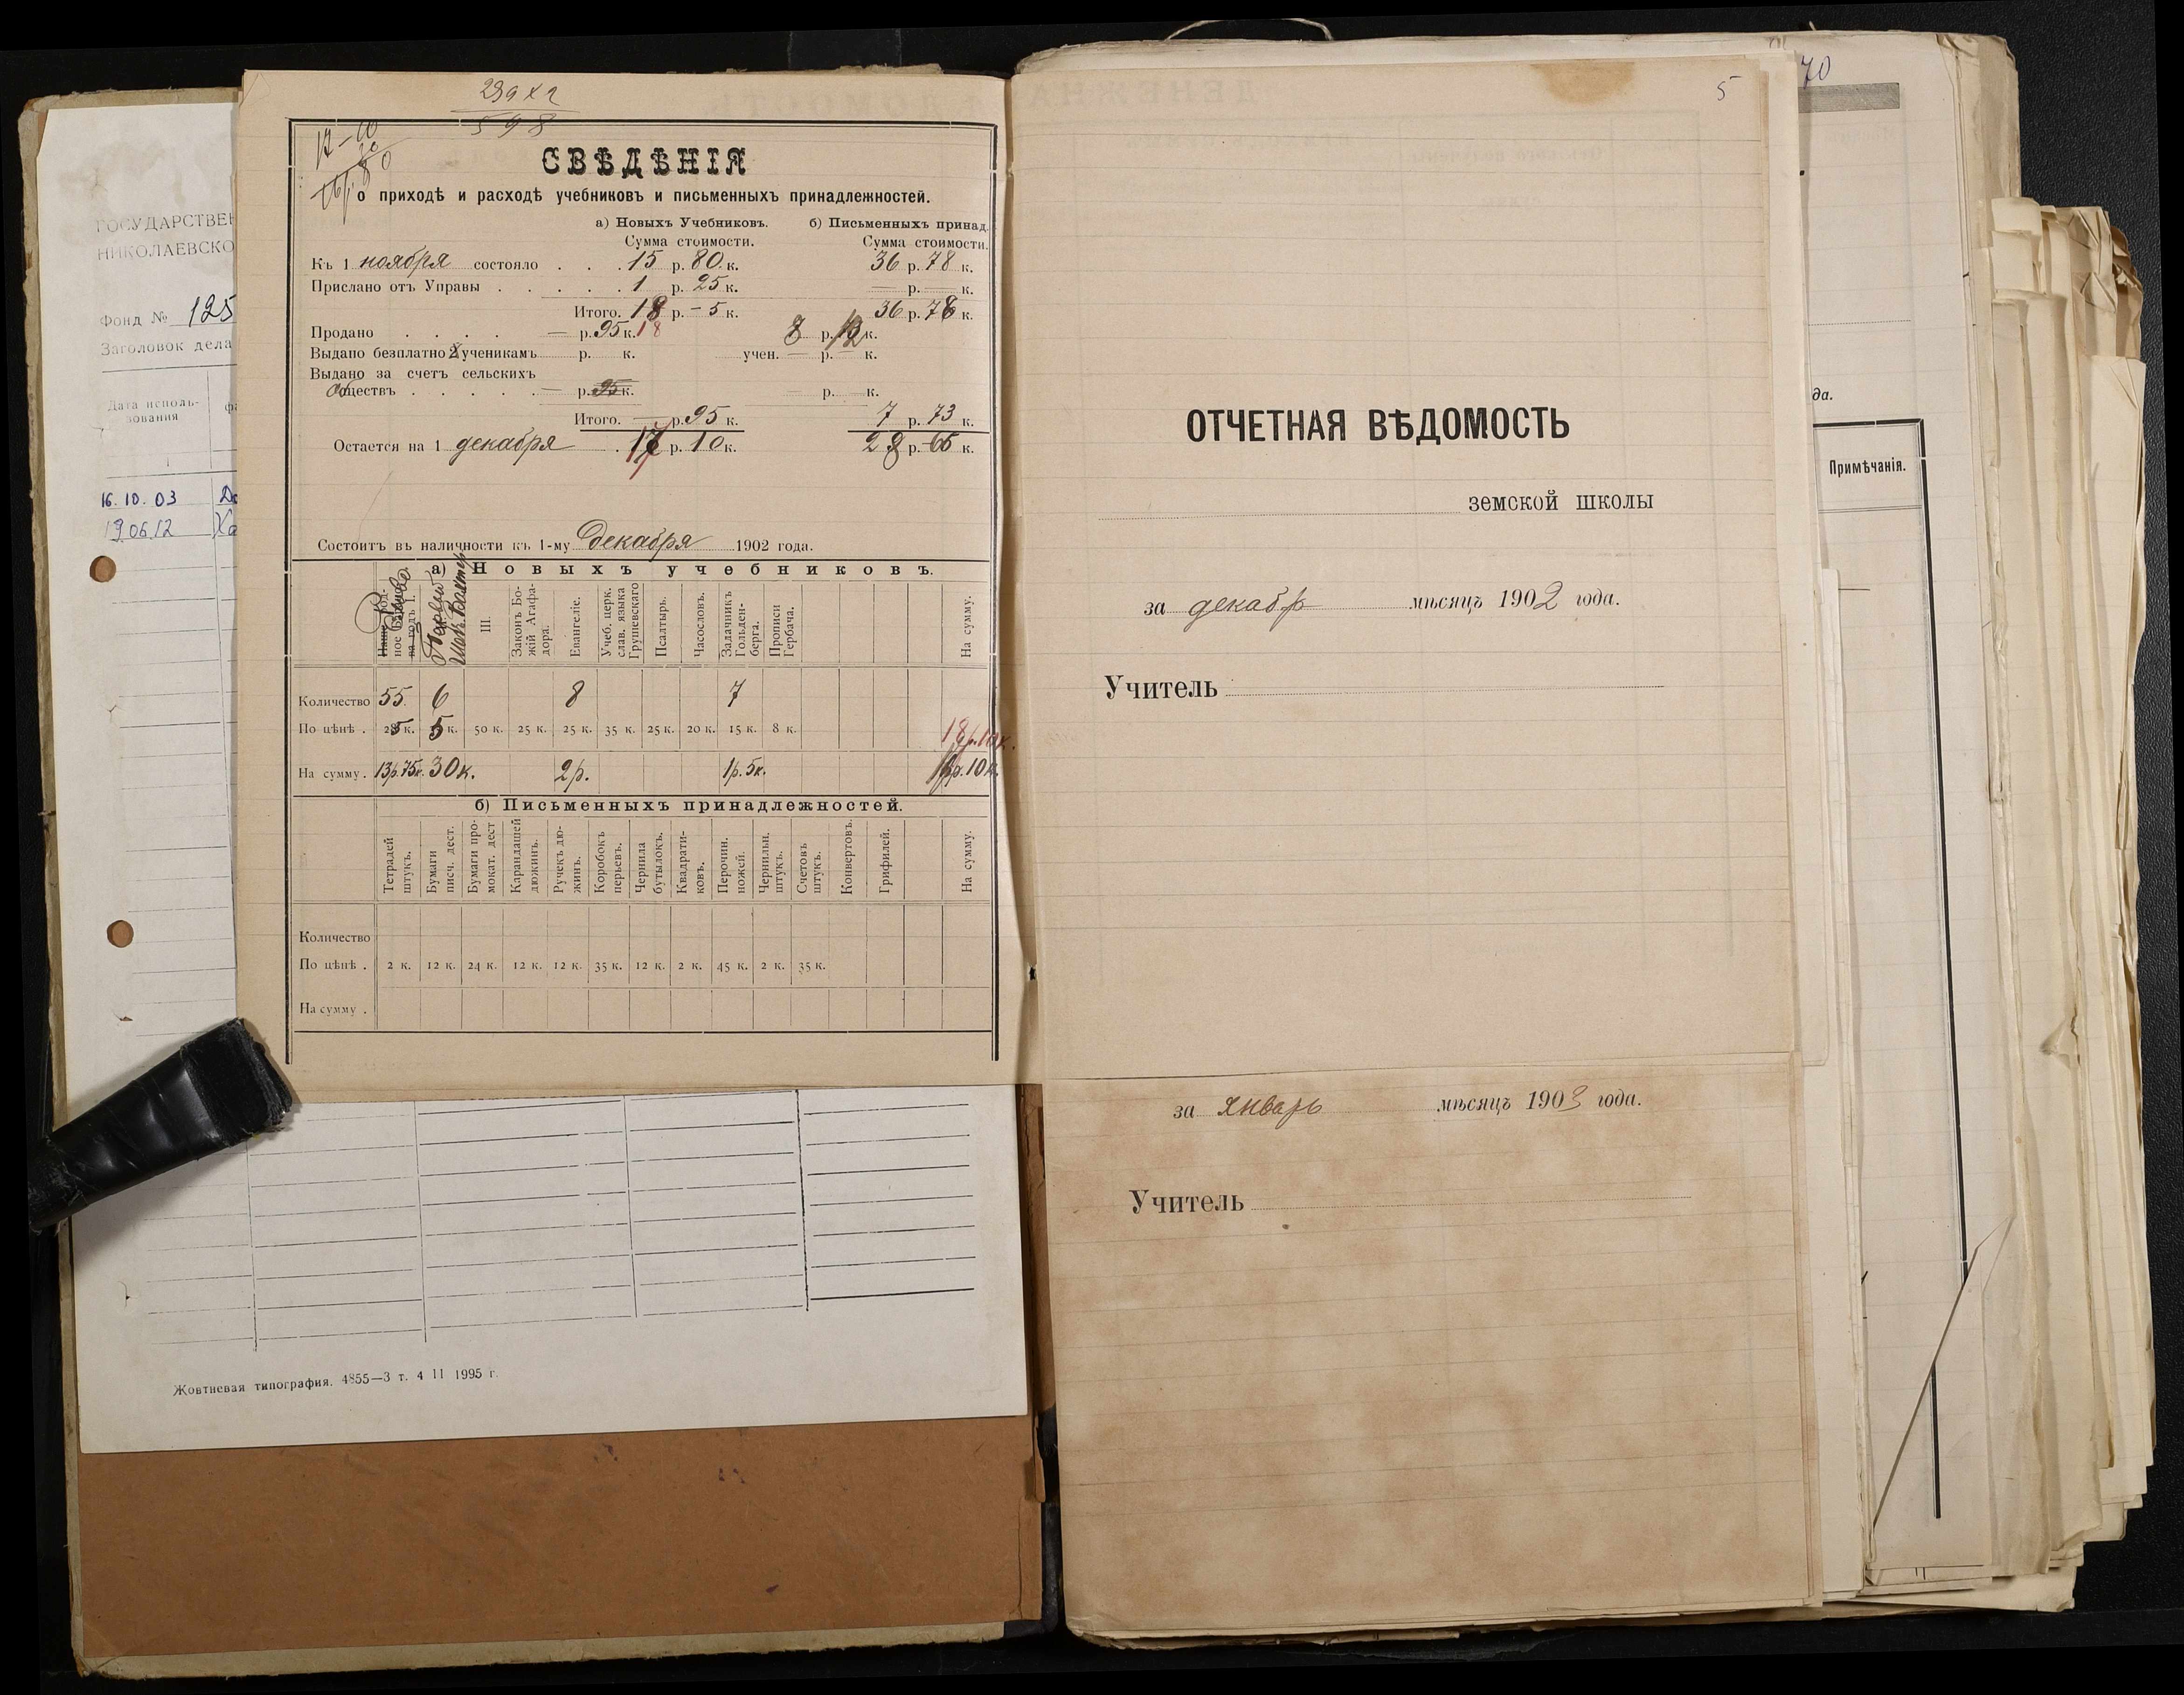 ГОСУДАРСТВЕН
НИКОЛАЕВСКО
Фонд № 125
Заголовок дела
Дата исполь-
зования
1
16.10.03
19 06 12
299 x 2
598
СВѢДѢНІЯ
о приходѣ и расходѣ учебниковъ и письменныхъ принадлежностей.
а) Новыхъ Учебниковъ. б) Письменныхъ принад.
Сумма стоимости. Сумма стоимости.
Къ 1 ноября состояло . . . 15 р. 80 к. 36 р. 78 к.
Прислано отъ Управы . . . . . 1 р. 25 к. — р. — к.
Итого. 18 р. - 5 к. 36 р. 78 к.
Продано . . . . — р. 95 к. 18 8 р. к.
Выдано безплатно ученикамъ р. к. учен. — р. — к.
Выдано за счетъ сельскихъ
обществъ . . . . . — р. 95 к. — р. к.
Итого. — р. 95 к. 7 р. 73 к.
Остается на 1 декабря . 17 р. 10 к. 28 р. 65 к.
Состоитъ въ наличности къ 1-му декабря 1902 года.
а) Новыхъ учебниковъ.
III.
Законъ Бо-
жій Агафа-
дора.
Евангеліе.
Учеб. церк.
слав. языка
Грушевскаго
Псалтырь.
Часословъ.
Задачникъ
Гольден-
берга.
Прописи
Гербача.
На сумму.
Количество 55. 6 8 7
По цѣнѣ . 25 к. 5 к. 50 к. 25 к. 25 к. 35 к. 25 к. 20 к. 15 к. 8 к.
18 р. 10 к.
На сумму . 13р.75к. 30к. 2р. 1р.5к. р. 10 к.
б) Письменныхъ принадлежностей.
Тетрадей
штукъ.
Бумаги
писч. дест.
Бумаги про-
мокат. дест
Карандашей
дюжинъ.
Ручекъ дю-
жинъ.
Коробокъ
перьевъ.
Чернила
бутылокъ.
Квадрати-
ковъ.
Перочин.
ножей.
Чернильн.
штукъ.
Счетовъ
штукъ.
Конвертовъ.
Грифилей.
На сумму.
Количество
По цѣнѣ . 2 к. 12 к. 24 к. 12 к. 12 к. 35 к. 12 к. 2 к. 45 к. 2 к. 35 к.
На сумму .
Жовтневая типография. 4855—3 т. 4 11 1995 г.
5
ОТЧЕТНАЯ ВѢДОМОСТЬ
земской школы
за декабрь мѣсяцъ 1902 года.
Учитель
за январь мѣсяцъ 1903 года.
Учитель
70
да.
Примѣчанія.